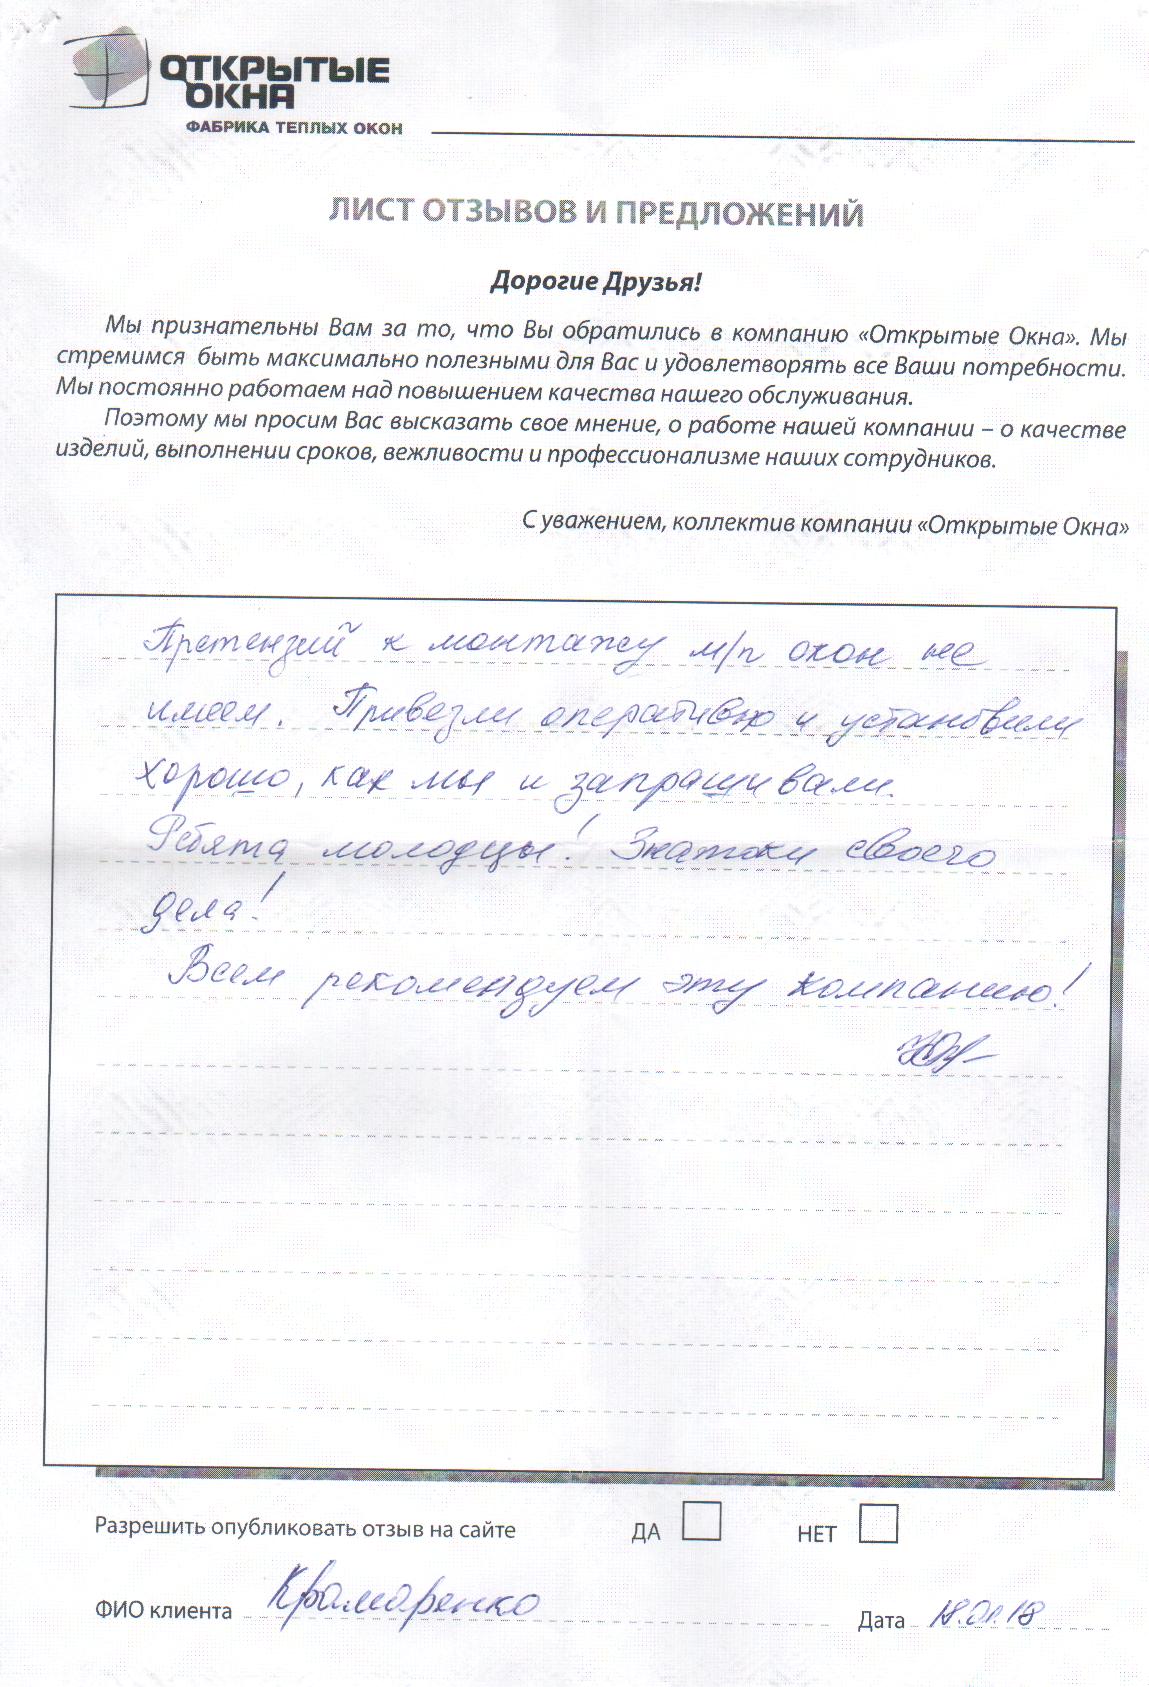 ОТКРЫТЫЕ
ОКНА
ФАБРИКА ТЕПЛЫХ ОКОН
ЛИСТ ОТЗЫВОВ И ПРЕДЛОЖЕНИЙ
Дорогие Друзья!
Мы признательны Вам за то, что Вы обратились в компанию «Открытые Окна». Мы
стремимся быть максимально полезными для Вас и удовлетворять все Ваши потребности.
Мы постоянно работаем над повышением качества нашего обслуживания.
Поэтому мы просим Вас высказать свое мнение, о работе нашей компании – о качестве
изделий, выполнении сроков, вежливости и профессионализме наших сотрудников.
С уважением, коллектив компании «Открытые Окна»
Претензий к монтажу м/п окон не
имеем. Привезли оперативно и установили
хорошо, как мы и запрашивали.
Ребята молодцы! Знатоки своего
дела!
Всем рекомендуем эту компанию!
Разрешить опубликовать отзыв на сайте ДА НЕТ
ФИО клиента Крамаренко Дата 18.01.18